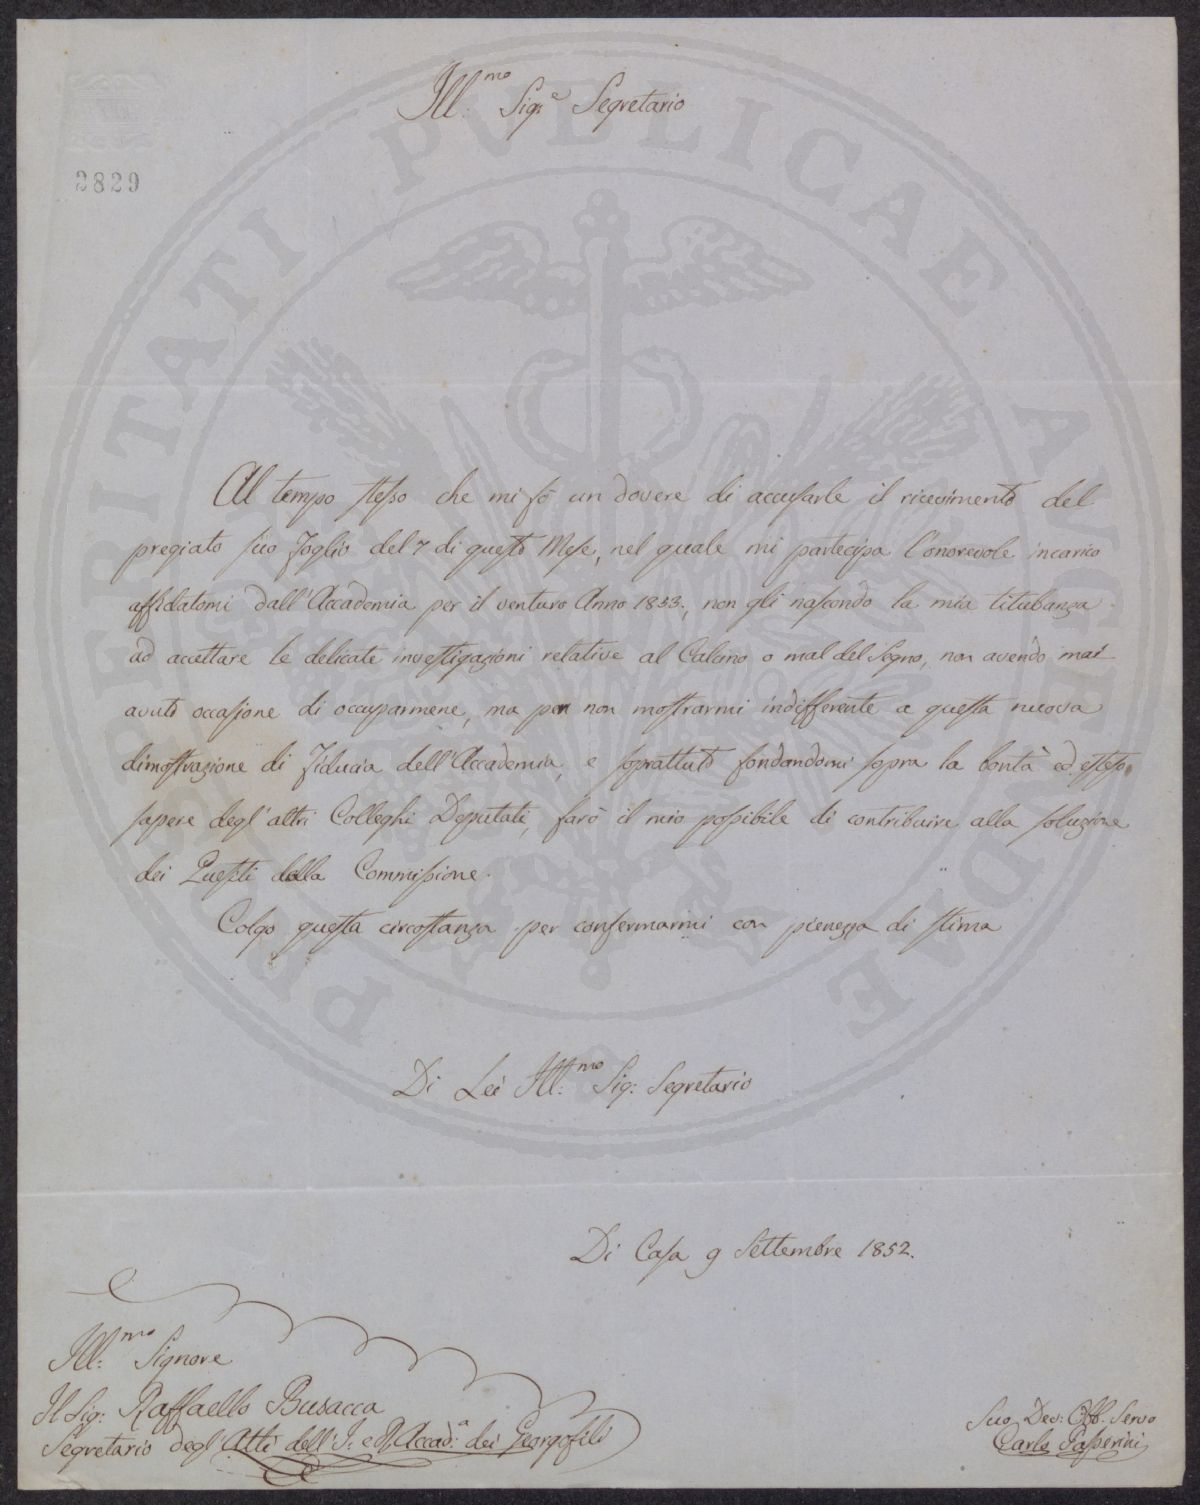 Ill:mo Sig:e Segretario
2829
PROSPERITATI PUBLICAE AUGENDAE
Al tempo stesso che mi fò un dovere di accusarle il ricevimento del
pregiato suo Foglio del 7 di questo Mese, nel quale mi partecipa l'onorevole incarico
affidatomi dall'Accademia per il venturo Anno 1853., non gli nascondo la mia titubanza
ad accettare le delicate investigazioni relative al Calcino o mal del segno, non avendo mai
avuto occasione di occuparmene, ma per non mostrarmi indifferente a questa nuova
dimostrazione di fiducia dell'Accademia, e soprattutto fondandomi sopra la bontà ed esteso
sapere degl'altri Colleghi Deputati, farò il mio possibile di contribuire alla soluzione
dei Quesiti della Commissione.
Colgo questa circostanza per confermarmi con pienezza di stima
Di Lei Ill:mo Sig: Segretario
Di Casa 9 Settembre 1852.
Ill:mo Signore
Il Sig: Raffaello Busacca
Segretario degl'Atti dell'I. e R. Accad:a dei Georgofili
Suo Dev: Obb. Servo
Carlo Passerini